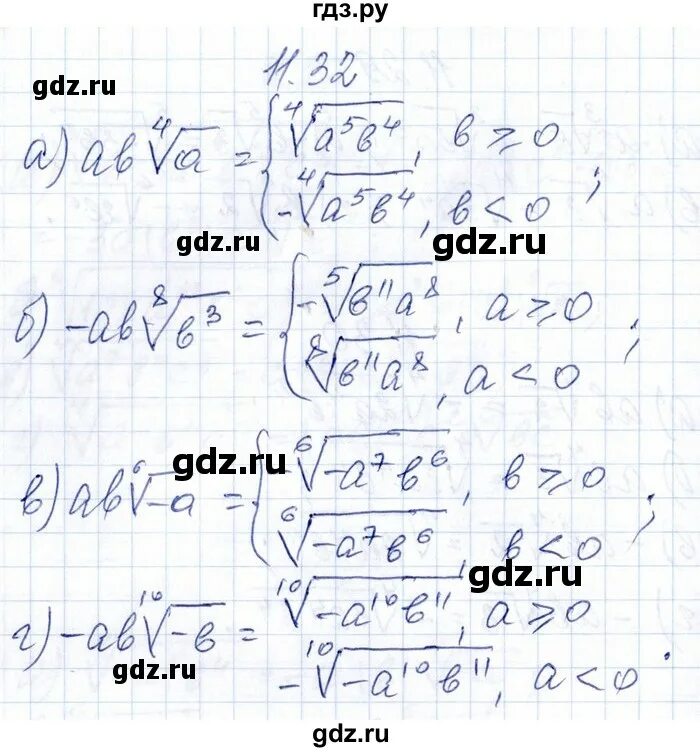 гдз.ру
11.32
gdz.ru
gdz.ru
а) ab∜a = { ∜(a⁵b⁴), b ≥ 0
-∜(a⁵b⁴), b < 0 ;
gdz.ru
gdz.ru
б) -ab ⁸√(b³) = { -⁵√(b¹¹a⁸), a ≥ 0
⁸√(b¹¹a⁸), a < 0 ;
gdz.ru
gdz.ru
в) ab ⁶√(-a) = { -⁶√(-a⁷b⁶), b ≥ 0
⁶√(-a⁷b⁶), b < 0 ;
gdz.ru
г) -ab ¹⁰√(-b) = ¹⁰√(-a¹⁰b¹¹), a ≥ 0
-¹⁰√(-a¹⁰b¹¹), a < 0 .
gdz.ru
gdz.ru
gdz.ru